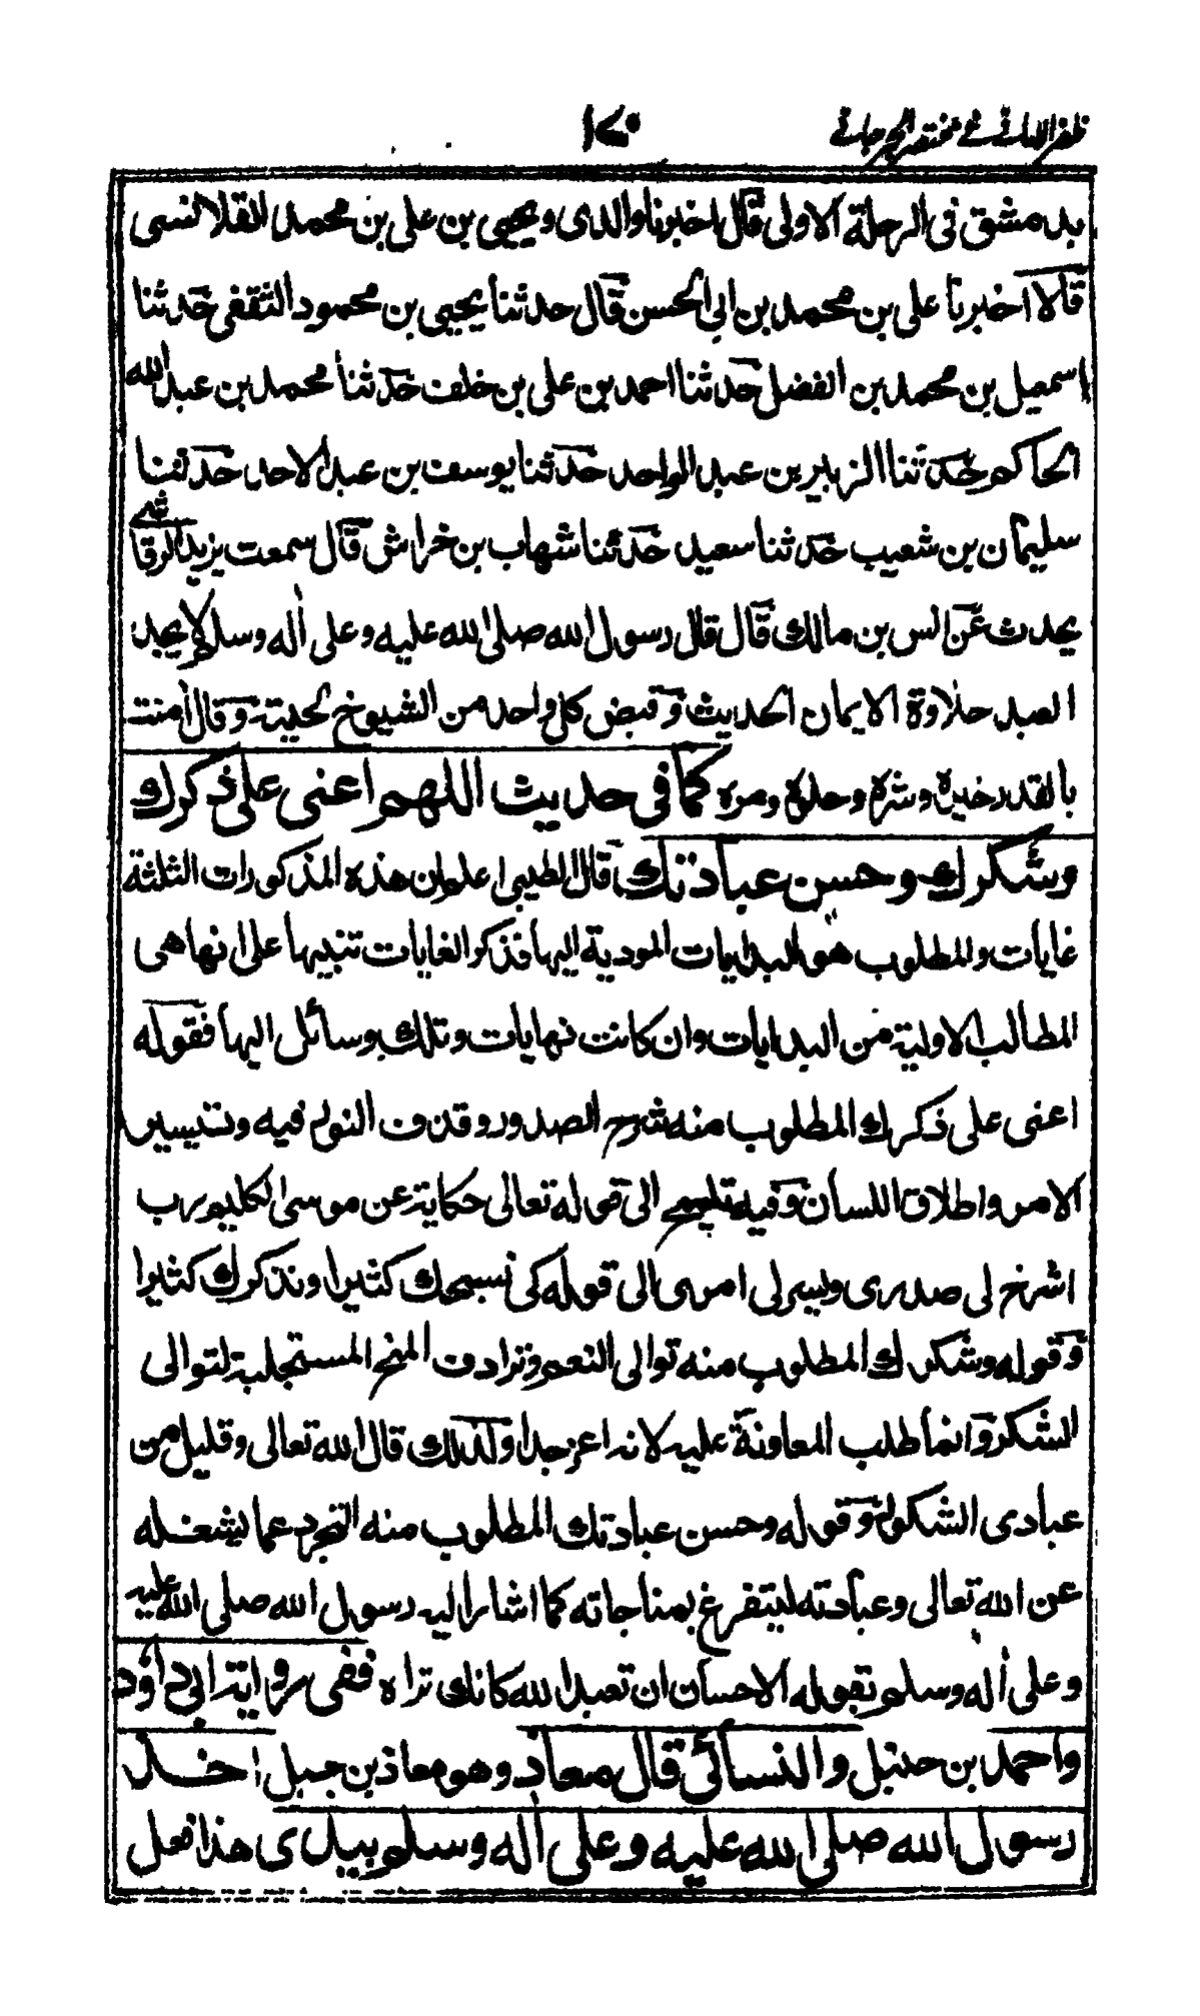 ظفر الاماني في مختصر الجرجاني
١٧٠
بدمشق في الرحلة الاولى قال اخبرنا والدي ويحيى بن علي بن محمد القلانسي
قالا اخبرنا علي بن محمد بن ابي الحسن قال حدثنا يحيى بن محمود الثقفي حدثنا
اسمعيل بن محمد بن الفضل حدثنا احمد بن علي بن خلف حدثنا محمد بن عبد الله
الحاكم حدثنا الزبير بن عبد الواحد حدثنا يوسف بن عبد الاحد حدثنا
سليمان بن شعيب حدثنا سعيد حدثنا شهاب بن خراش قال سمعت يزيد الرقاشي
يحدث عن انس بن مالك قال قال رسول الله صلى الله عليه وعلى اله وسلم لا يجد
العبد حلاوة الايمان الحديث وقبض كل واحد من الشيوخ لحيته وقال امنت
بالقدر خيره وشره وحلوه ومره كما في حديث اللهم اعني على ذكرك
وشكرك وحسن عبادتك قال الطيبي اعلم ان هذه المذكورات الثلثة
غايات والمطلوب هو البدايات المودية اليها فذكر الغايات تنبيها على انها هي
المطالب الاولية من البدايات وان كانت نهايات وتلك وسائل اليها فقوله
اعني على ذكرك المطلوب منه شرح الصدور وقذف النور فيه وتيسير
الامر واطلاق اللسان وفيه تلميح الى قوله تعالى حكاية عن موسى الكليم رب
اشرح لي صدري ويسر لي امري الى قوله كي نسبحك كثيرا ونذكرك كثيرا
وقوله وشكرك المطلوب منه توالي النعم وترادف المنح المستجلبة لتوالي
الشكر وانما طلب المعاونة عليه لانه اعز جدا ولذلك قال الله تعالى وقليل من
عبادي الشكور وقوله وحسن عبادتك المطلوب منه التجرد عما يشغله
عن الله تعالى وعبادته ليتفرغ بمناجاته كما اشار اليه رسول الله صلى الله عليه
وعلى اله وسلم بقوله الاحسان ان تعبد الله كانك تراه ففي رواية ابي داؤد
واحمد بن حنبل والنسائي قال معاذ وهو معاذ بن جبل اخذ
رسول الله صلى الله عليه وعلى اله وسلم بيدي هذا فعل